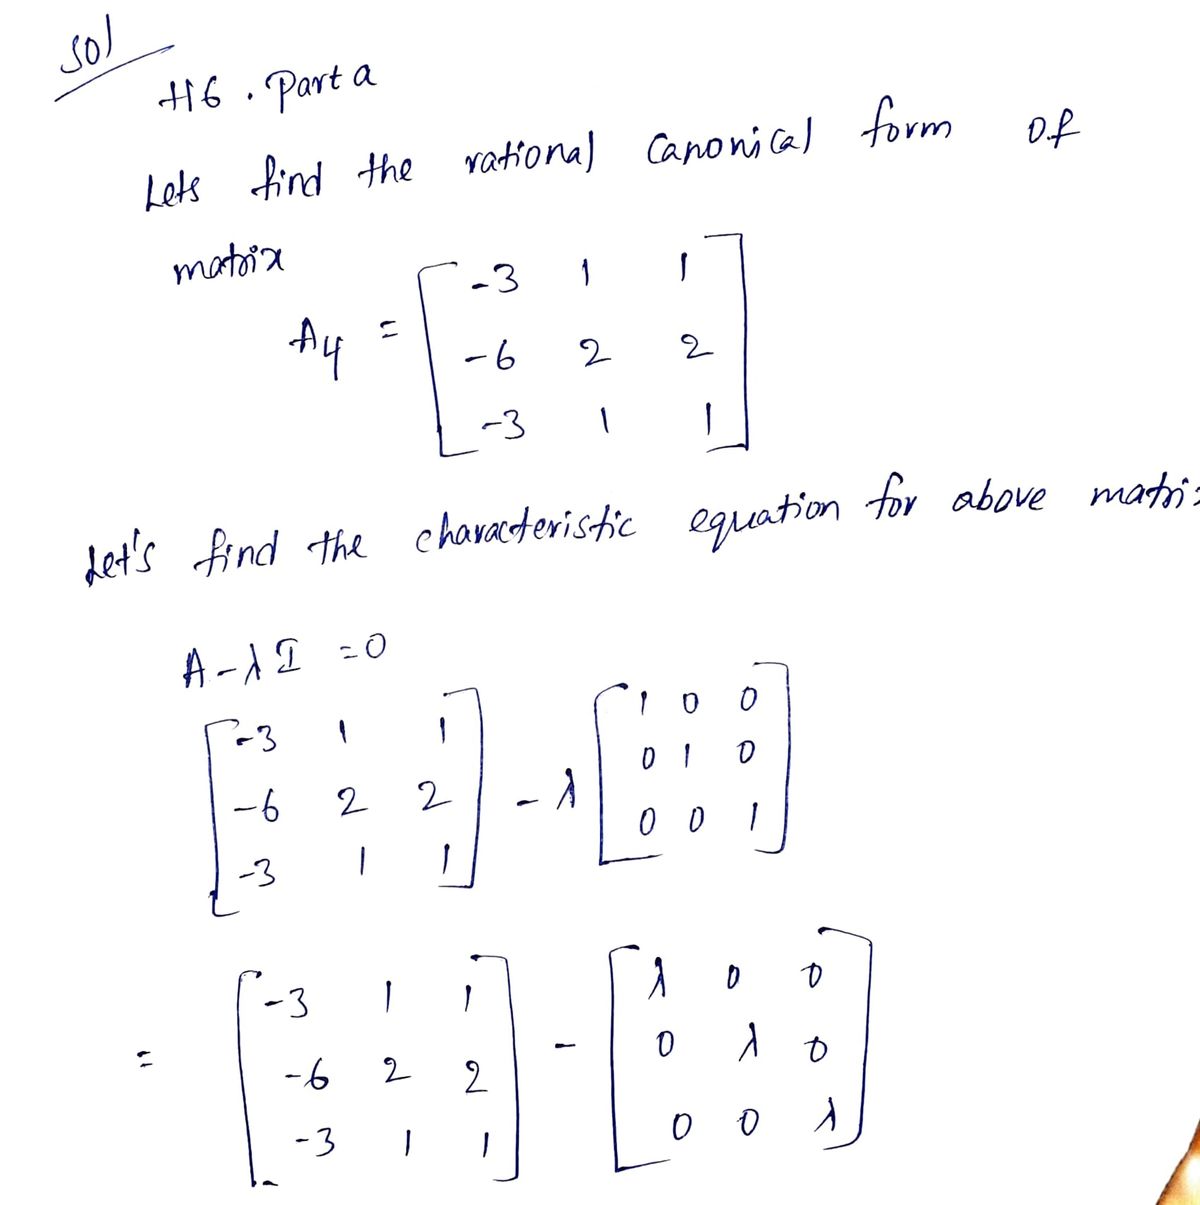 Sol
H6. Part a
Lets find the rational canonical form of
matrix
A4 = [ -3 1 1
-6 2 2
-3 1 1 ]
Let's find the characteristic equation for above matri
A-λI =0
[ -3 1 1
-6 2 2
-3 1 1 ] - λ [ 1 0 0
0 1 0
0 0 1 ]
= [ -3 1 1
-6 2 2
-3 1 1 ] - [ λ 0 0
0 λ 0
0 0 λ ]